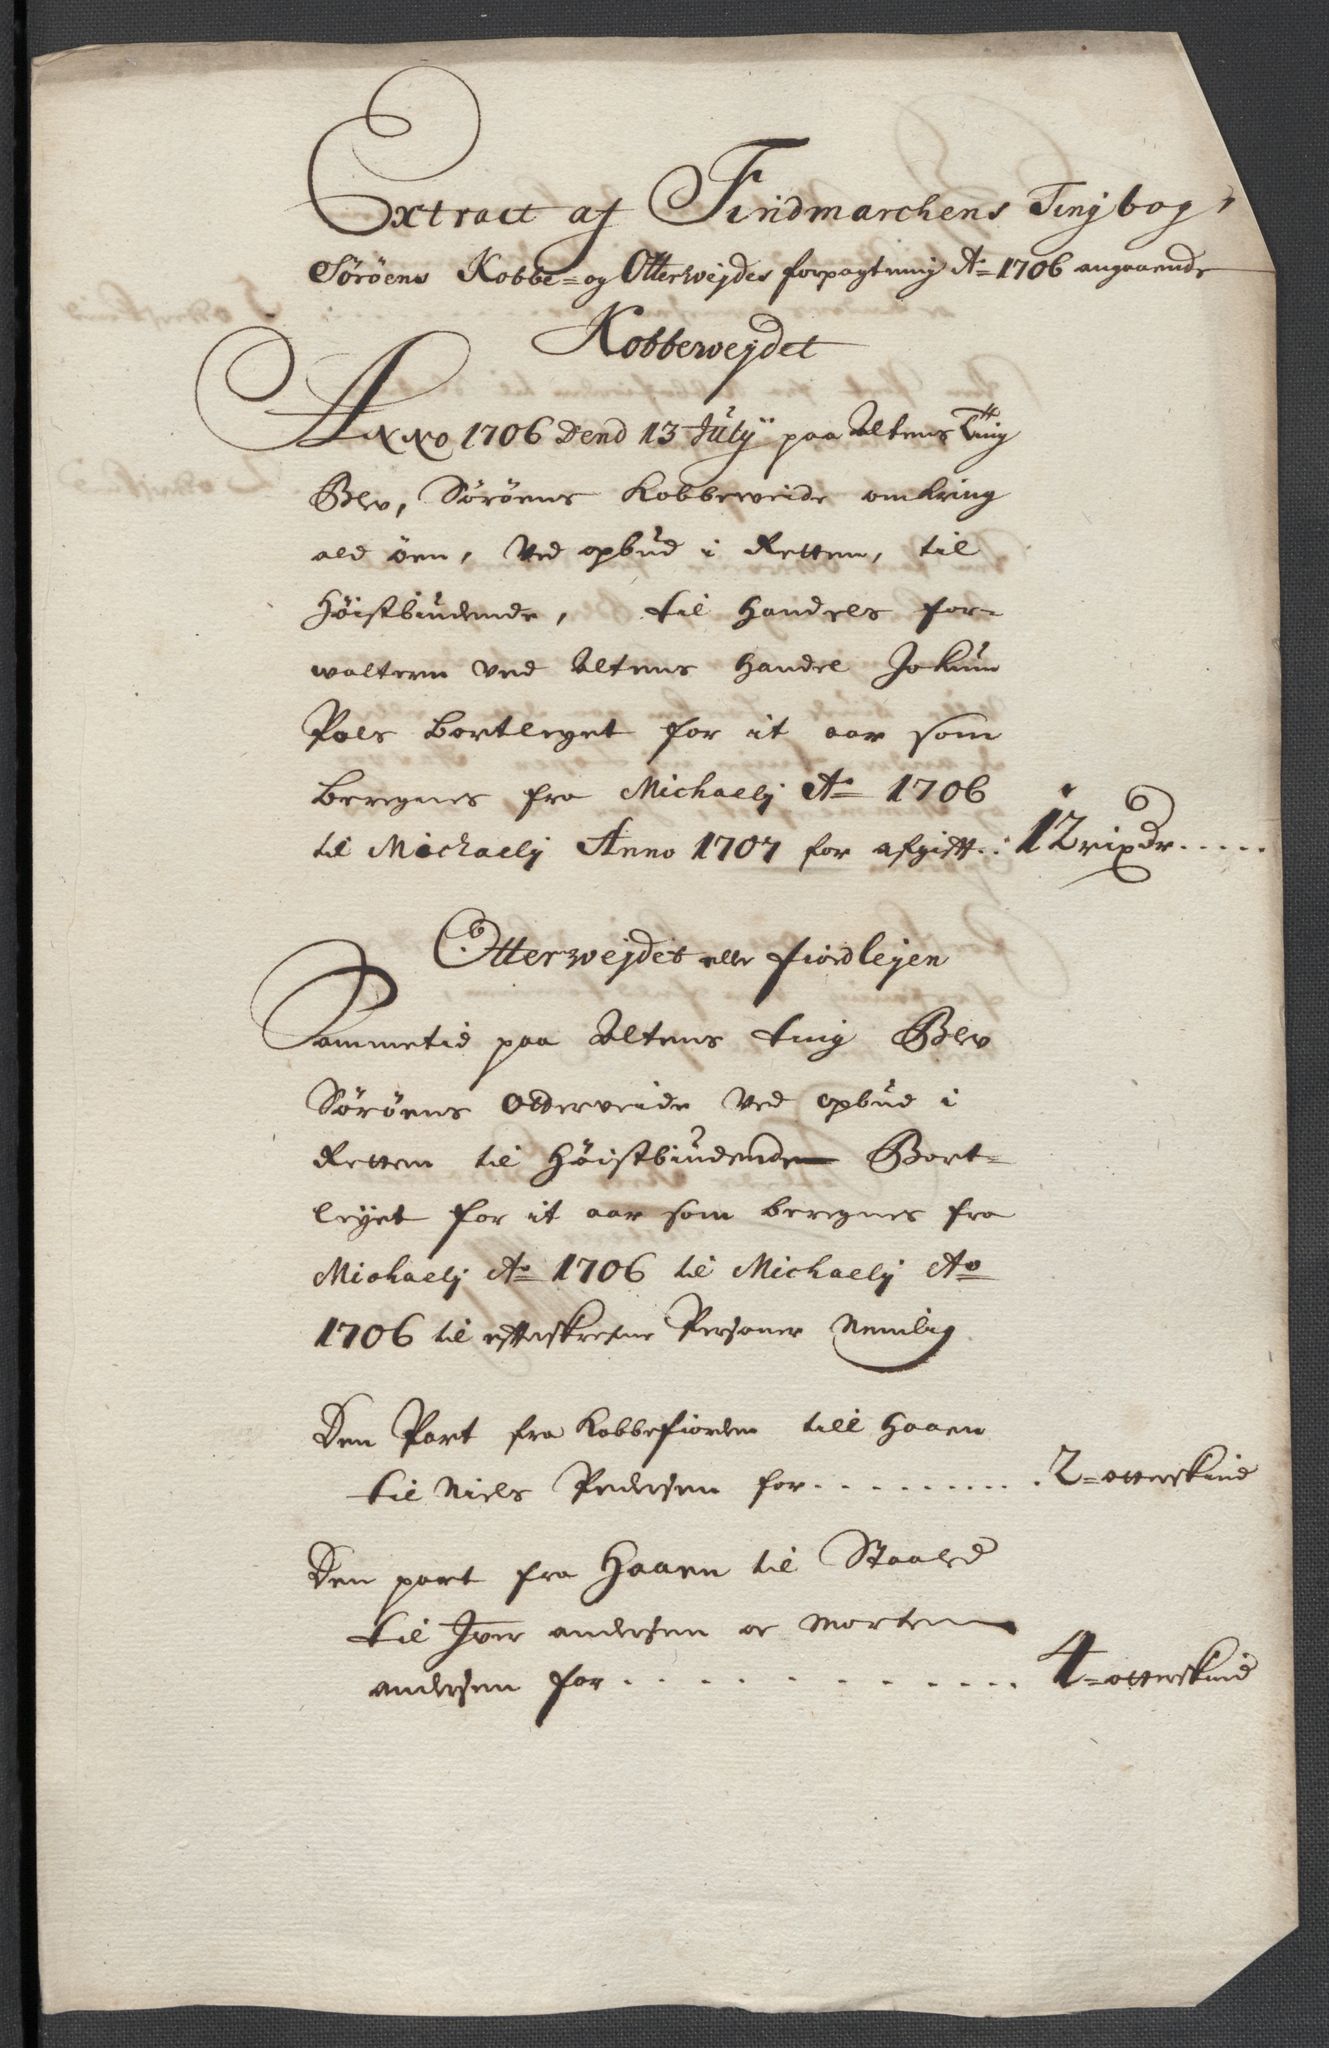 Extract af Findmarchens Tingbog,
Sørøens Kobbe= og Otterwejdes forpagtning Ao 1706 angaaende
Kobbewejdet
Anno 1706 Dend 13 July paa Altens Ting
Blev, Sørøens Kobbeweide omkring
ald øen, Ved opbud i Retten, til
Høistbiudende, til Handels for-
walteren ved Altens Handel Jokum
Pols bortleyet for it aar som
beregnes fra Michaelij Ao 1706
til Michaelij Anno 1707 for afgifft. 12 rixdr
Otterwejdet eller fiordlejen
Sammetid paa Altens ting Blev
Sørøens Otterweide Ved opbud i
Retten til Høistbiudende Bort-
leyet for it aar som beregnes fra
Michaelij Ao 1706 til Michaelij Ao
1706 til effterskrefne Personer Nemlig
Den Part fra Kobbefiorden till Haaen
til Niels Pedersen for 2= otterskind
Den part fra Haaen til Staalet
til Iver andersen oc Morten
andersen for 4= otterskind